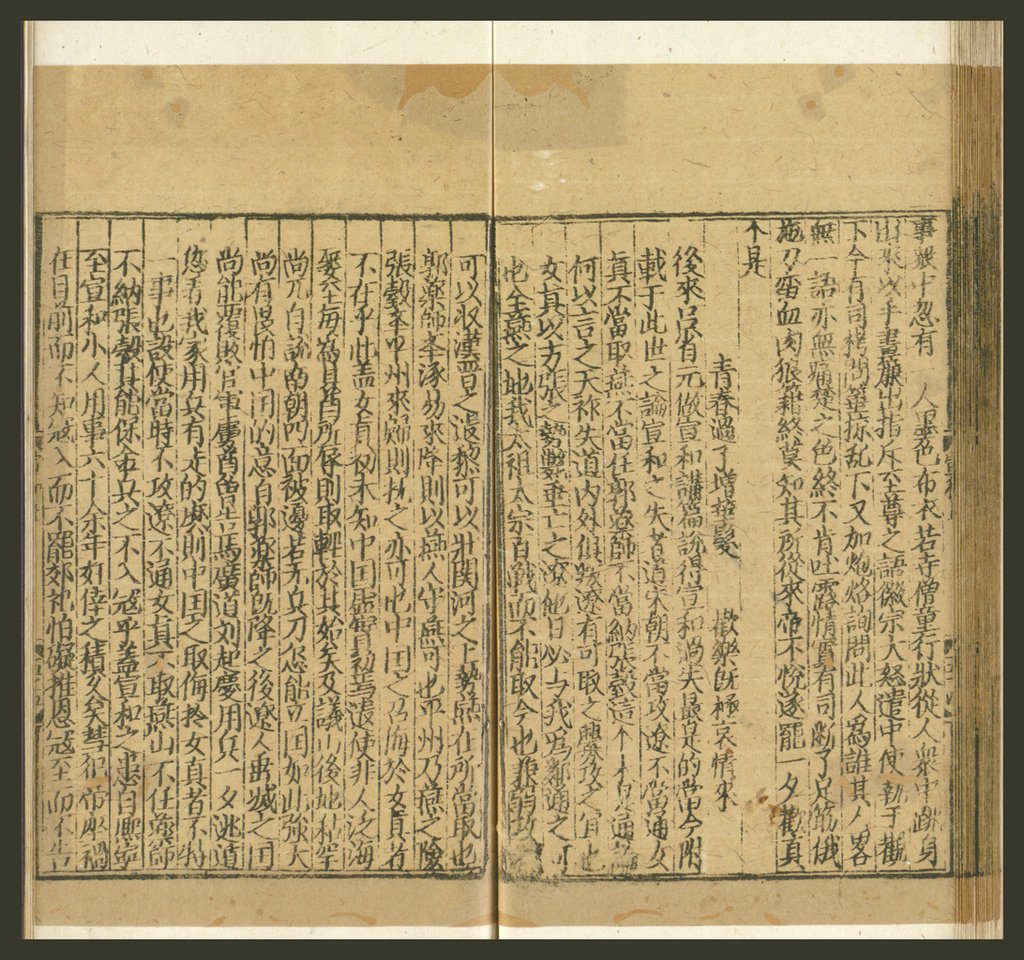 事眾中忽有一人墨色布衣若寺僧童行狀從人眾中跳身
出來以手畫簾出指斥至尊之語徽宗大怒遣中使執于觀
下令有司栲訊箠掠乱下又加炮烙詢問此人為誰其人略
無一語亦無痛楚之色終不肯吐露情實有司斷了足筋俄
施刀臠血肉狼籍終莫知其所從來帝不悅遂罷一夕歡真
个是
青春過了增華髮 歡樂既極哀情來
後來呂省元做宣和講篇說得宣和過失最是的當今附
載于此世之論宣和之失者道宋朝不當攻遼不當通女
真不當取燕不當任郭藥師不當納張瑴這个未是通論
何以言之天祚失道內外俱叛遼有可取之釁攻之宜也
女真以方張之勢斃垂亡之遼他日必与我為鄰通之可
也全燕之地我太祖太宗百戰而不能取今也兼弱攻
可以収漢晋之遺黎可以壯関河之上勢燕在所當取也
郭藥師舉涿易來降則以燕人守燕可也平州乃燕之險
張瑴舉平州來歸則執之亦可也中囯之召侮於女真者
不在乎此盖女真初未知中囯虛實馬使非人泛海
為其所保則取輕於其始矣及議山後地粘罕
尚兀自說南朝四面被邊若无兵力怎能立囯如此強大
尚有畏怕中囯的意自郭藥師既降之後遼人垂滅之囯
尚能覆敗官軍慶曾告馬廣道刘起慶用兵一夕逃遁
您看我家用兵有走的麽則中囯之取侮於女真者不特
一事也設使當時不攻遼不通女真不取燕山不任藥師
不納張瑴其能保金兵之不入冦乎盖宣和之患自熙寧
至宣和小人用事六十余年奸倖之積久矣彗犯帝座禍
在目前而不知冦入而不罷郊祀怕礙推恩冦至而不告